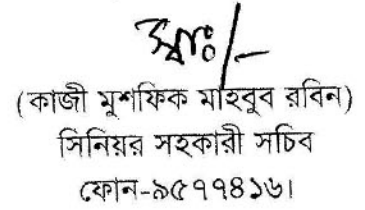 স্বাঃ/-
(কাজী মুশফিক মাহবুব রবিন)
সিনিয়র সহকারী সচিব
ফোন-৯৫৭৭৪১৬।